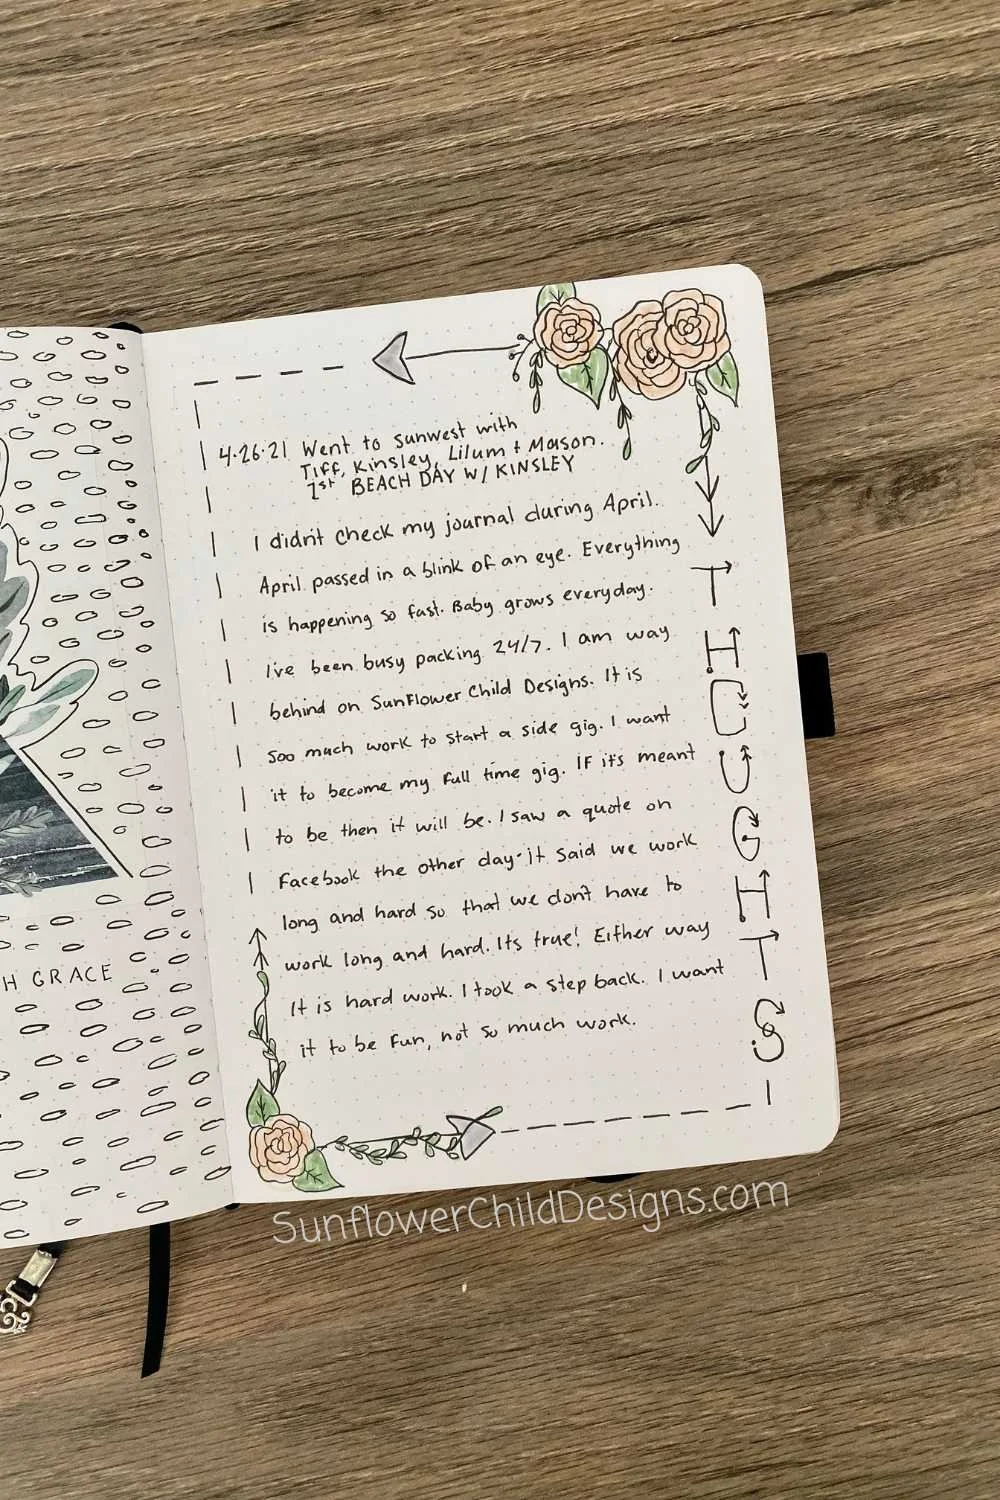 4.26.21 Went to sunwest with
Tiff, Kinsley, Lilum + Mason.
1st BEACH DAY W/ KINSLEY
I didn't check my journal during April.
April passed in a blink of an eye. Everything
is happening so fast. Baby grows everyday.
I've been busy packing 24/7. I am way
behind on SunFlower Child Designs. It is
soo much work to start a side gig. I want
it to become my full time gig. If it's meant
to be then it will be. I saw a quote on
Facebook the other day-it said we work
long and hard so that we don't have to
work long and hard. Its true! Either way
It is hard work. I took a step back. I want
it to be fun, not so much work.
THOUGHTS
H GRACE
SunflowerChildDesigns.com